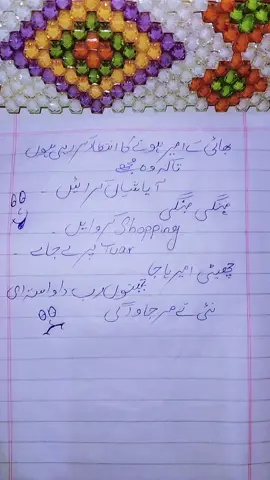 بھائی کے امیر ہونے کا انتظار کر رہی ہوں
تاکہ وہ مجھے
آیاشیاں کرائیں -
چنگی چنگی
Shopping کروائیں -
Tuor پر لے جائے -
چھیتی امیر ہا جا
تینوں رب دا واسطہ ای
نئی تے مر جاواں گی